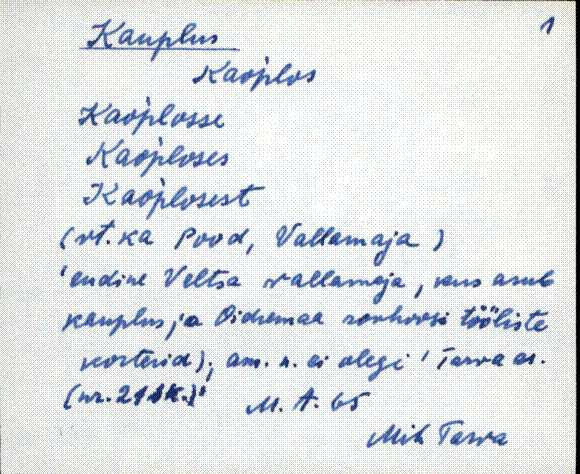 1
Kauplus
Kaoplos
Kaoplosse
Kaoploses
Kaoplosest
(vt. ka Pood, Vallamaja)
'endine Veltsa vallamaja, kus asub
kauplus ja Oidremaa sovhoosi tööliste
korterid); am. n. ei olegi ' Tarva as.
(nr. 211k.)'
M. A. 65
Mih Tarva